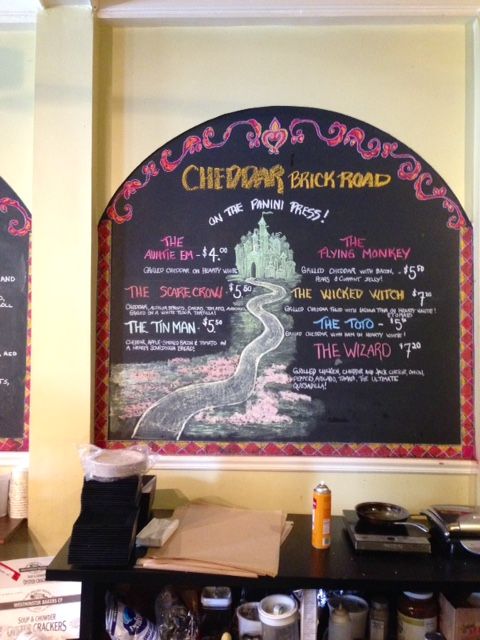 CHEDDAR BRICK ROAD
ON THE PANINI PRESS!
THE AUNTIE EM - $4.00
GRILLED CHEDDAR ON HEARTY WHITE
THE SCARECROW - $5.50
CHEDDAR,
GRILLED ON A WHITE FLOUR TORTILLA!
THE TIN MAN - $5.50
CHEDDAR, APPLE-SMOKED BACON & TOMATO ON
A HEARTY SOURDOUGH BREAD!
THE FLYING MONKEY - $5.50
GRILLED CHEDDAR WITH BACON,
PEARS & CURRANT JELLY!
THE WICKED WITCH
GRILLED CHEDDAR WITH TUNA ON HEARTY WHITE!
THE TOTO - $5.50
GRILLED CHEDDAR WITH HAM ON HEARTY WHITE!
THE WIZARD $7.20
GRILLED CHICKEN, CHEDDAR AND JACK CHEESE, ONION,
PEPPERS, AVOCADO, TOMATO, THE ULTIMATE
QUESADILLA!
AND
RED
WESTMINSTER BAKERS CO
SOUP & CHOWDER
OYSTER CRACKERS